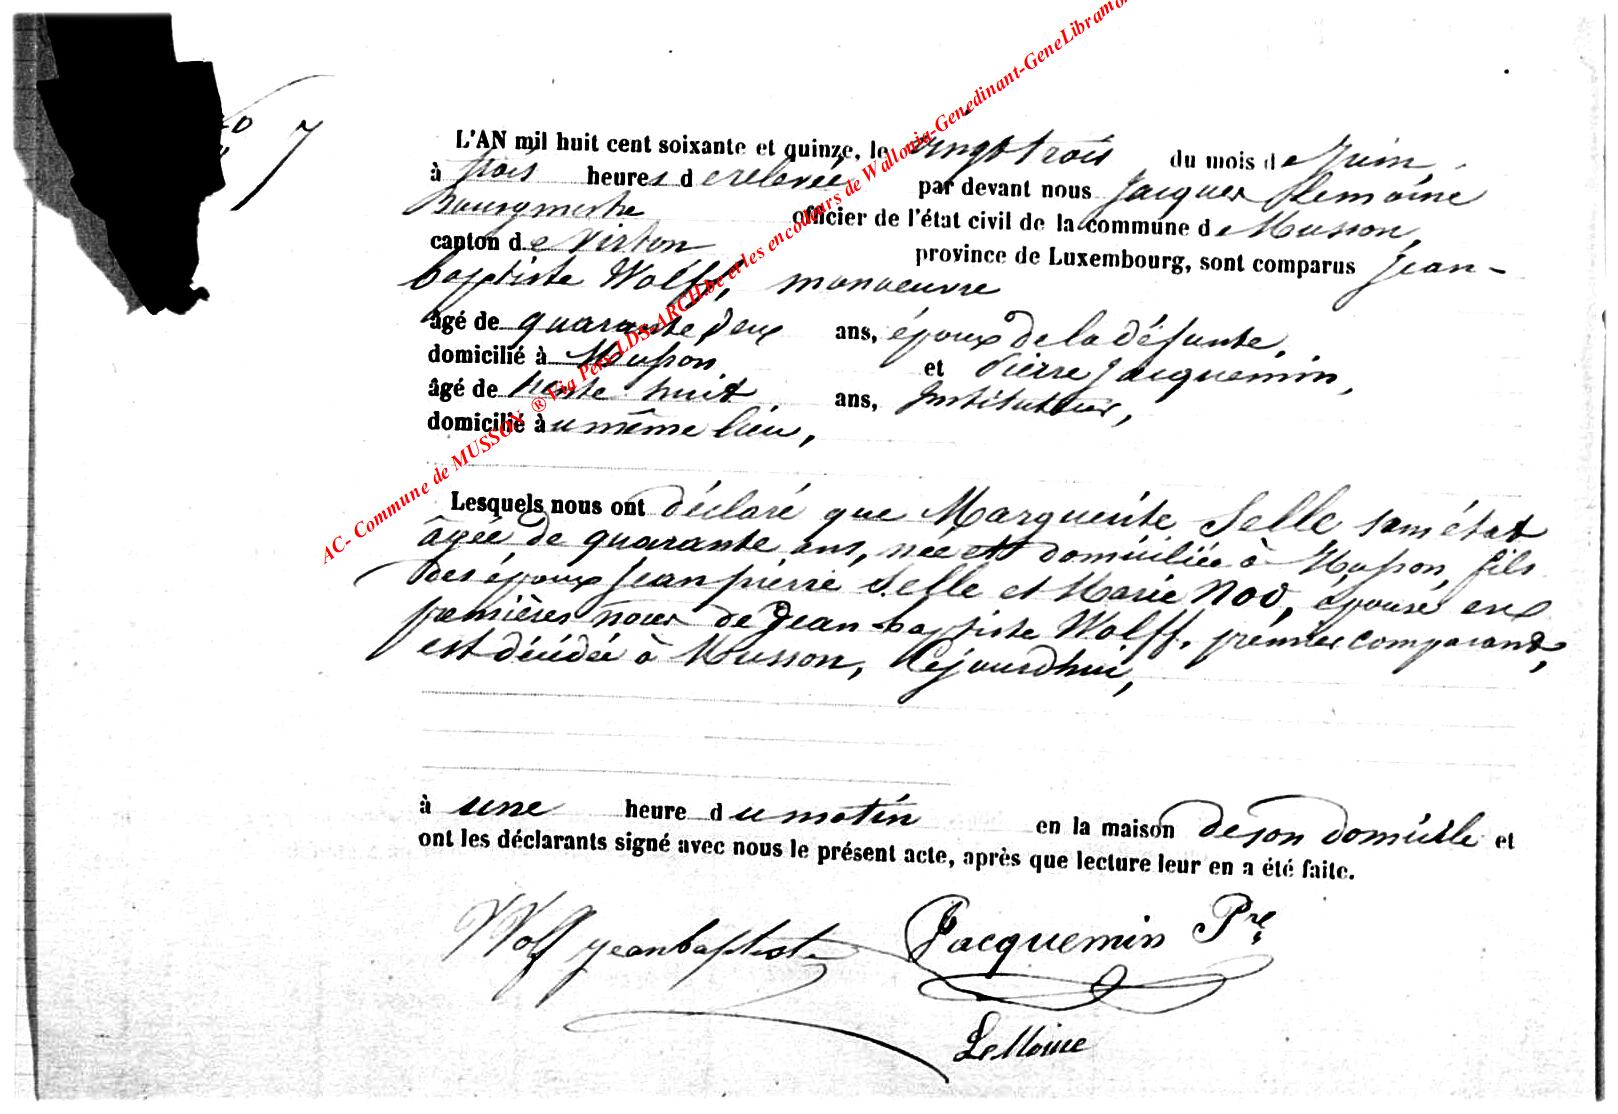 7
L'AN mil huit cent soixante et quinze, le vingt trois du mois de Juin,
à trois heures de relevée par devant nous Jacques Lemoine
Bourgmestre officier de l'état civil de la commune de Musson,
canton de Virton province de Luxembourg, sont comparus Jean-
baptiste Wolff, manoeuvre
âgé de quarante deux ans, époux de la défunte,
domicilié à Musson et Pierre Jacquemin,
âgé de trente huit ans, Instituteur,
domicilié au même lieu,
Lesquels nous ont déclaré que Marguerite Selle sans état
âgée de quarante ans, née et domiciliée à Musson, fils
des époux Jean pierre Selle et Marie Noö, épouse en
premières noces de Jean baptiste Wolff. premier comparant,
est décédée à Musson, Cejourdhui,
à une heure du matin en la maison de son domicile et
ont les déclarants signé avec nous le présent acte, après que lecture leur en a été faite.
Wolff jeanbaptiste Jacquemin Pre
LeMoine
AC- Commune de MUSSON ® Via Pers-LDS-ARCH.be et les encodeurs de Wallonia-Genedinant-GeneLibramo